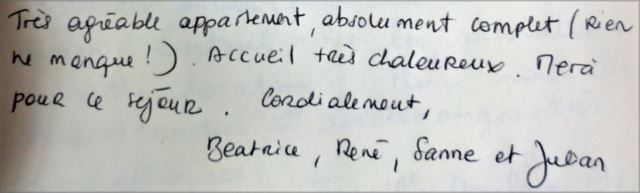 Très agréable appartement, absolument complet (Rien
ne manque!). Accueil très chaleureux. Merci
pour ce séjour. Cordialement,
Beatrice, René, Sanne et